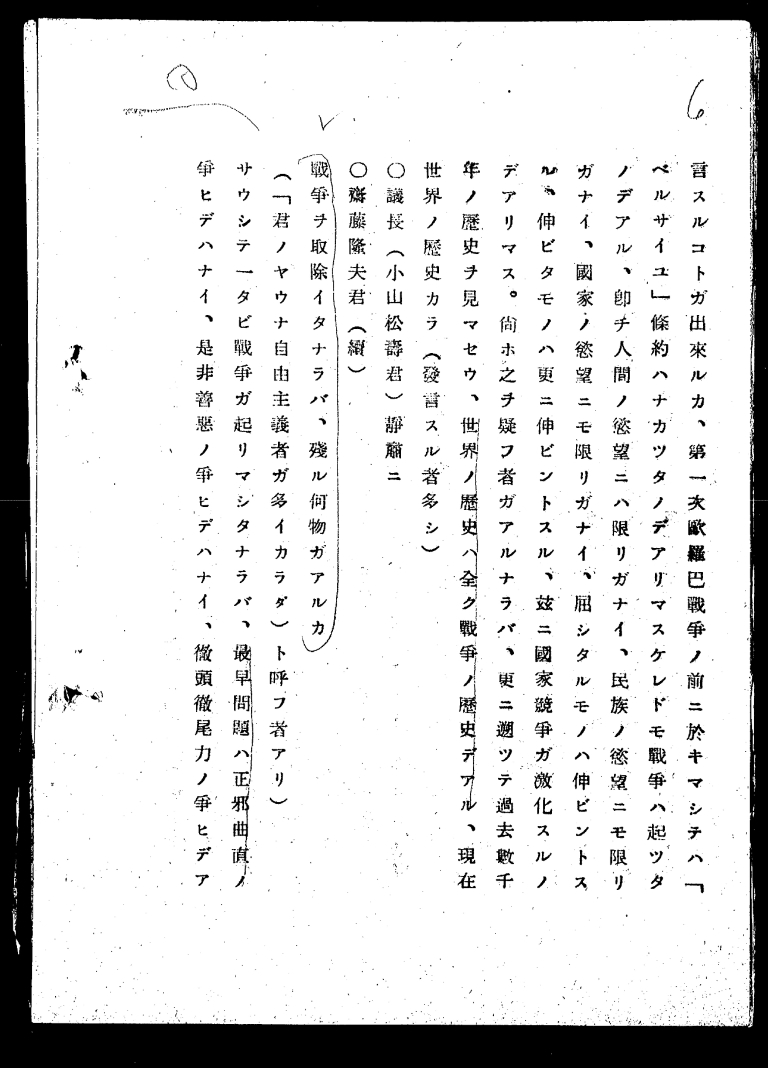 6
言スルコトガ出來ルカ、第一次歐羅巴戰爭ノ前ニ於キマシテハ「
ベルサイユ」條約ハナカツタノデアリマスケレドモ戰爭ハ起ツタ
ノデアル、卽チ人間ノ慾望ニハ限リガナイ、民族ノ慾望ニモ限リ
ガナイ、國家ノ慾望ニモ限リガナイ、屈シタルモノハ伸ビントス
ル、伸ビタモノハ更ニ伸ビントスル、玆ニ國家競爭ガ激化スルノ
デアリマス。尙ホ之ヲ疑フ者ガアルナラバ、更ニ遡ツテ過去數千
年ノ歷史ヲ見マセウ、世界ノ歷史ハ全ク戰爭ノ歷史デアル、現在
世界ノ歷史カラ（發言スル者多シ）
〇議長（小山松壽君）靜肅ニ
〇齋藤隆夫君（續）
戰爭ヲ取除イタナラバ、殘ル何物ガアルカ
（「君ノヤウナ自由主義者ガ多イカラダ）ト呼フ者アリ）
サウシテ一タビ戰爭ガ起リマシタナラバ、最早問題ハ正邪曲直ノ
爭ヒデハナイ、是非善惡ノ爭ヒデハナイ、徹頭徹尾力ノ爭ヒデア